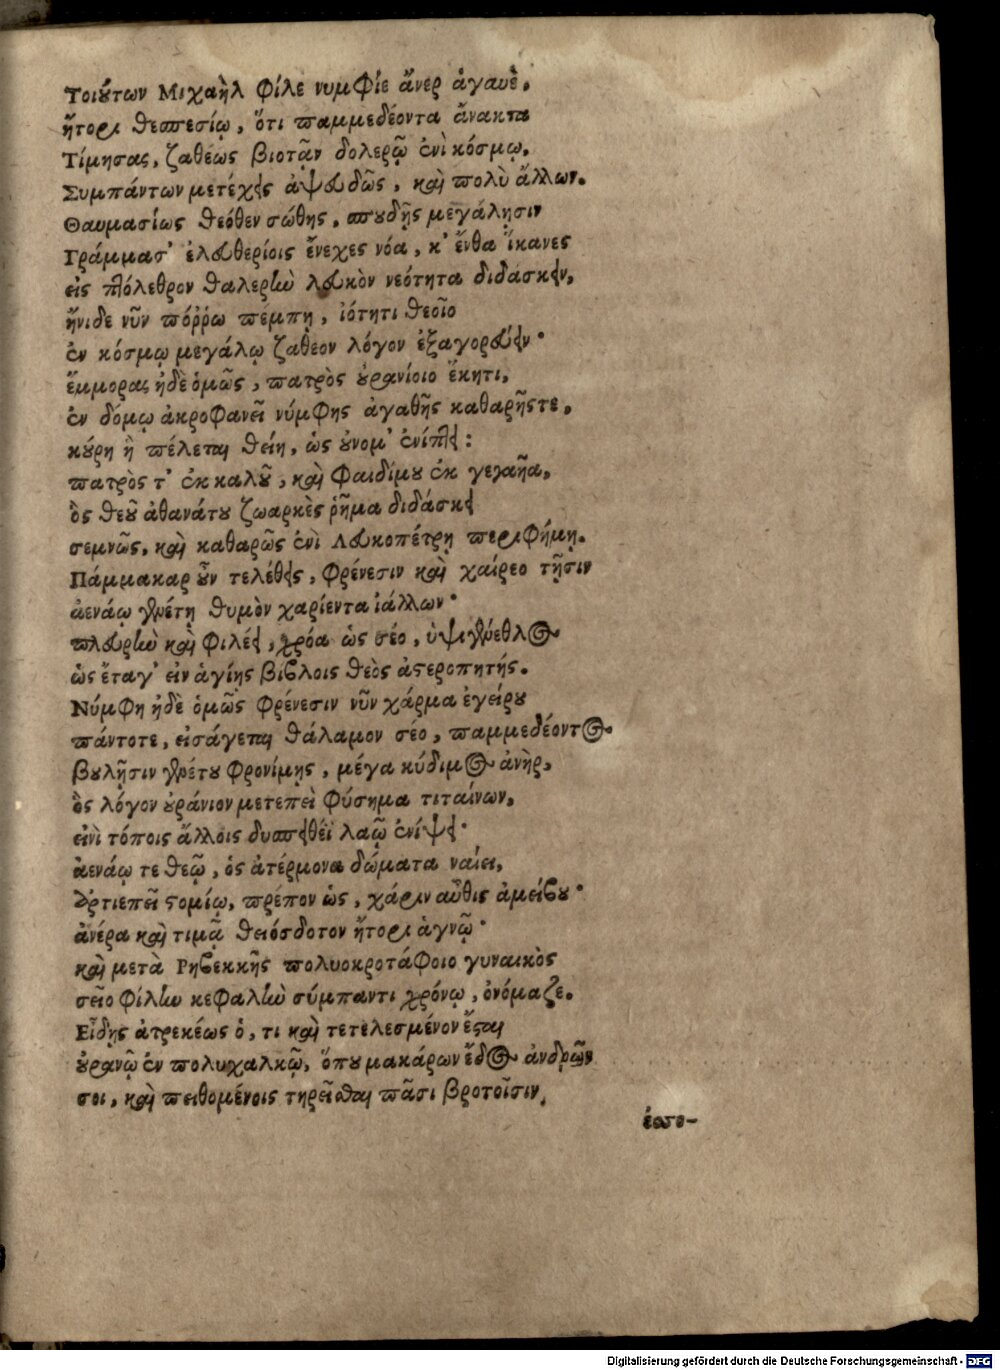 Τοιούτων Μιχαὴλ φίλε νυμφίε ἄνερ ἀγαυὲ,
ἤτορι θεσπεσίῳ, ὅτι παμμεδέοντα ἄνακτα
Τίμησας, ζαθέως βιοτᾷν δολερῷ ἐνὶ κόσμῳ.
Συμπάντων μετέχεις ἀψευδῶς, καὶ πολὺ ἄλλων.
Θαυμασίως θεόθεν σώθης, σπουδῇς μεγάλῃσιν
Γράμμασ' ἐλευθερίοις ἔνεχες νόα, κ' ἔνθα ἵκανες
εἰς πτόλεθρον θαλερὴν λευκὸν νεότητα διδάσκειν,
ἤνιδε νῦν πόῤῥω πέμπῃ, ἰότητι θεοῖο
ἐν κόσμῳ μεγάλῳ ζαθεον λόγον ἐξαγορεύειν·
ἔμμορας ἠδὲ ὁμῶς, πατρὸς οὐρανίοιο ἕκητι,
ἐν δόμῳ ἀκροφανεῖ νύμφης ἀγαθῆς καθαρῆς τε,
κύρη ἣ πέλεται θείη, ὡς οὔνομ' ἐνίπτει:
πατρὸς τ' ἐκ καλοῦ, καὶ φαιδίμου ἐκ γεγαῆα,
ὃς θεοῦ ἀθανάτου ζωαρκὲς ῥῆμα διδάσκει
σεμνῶς, καὶ καθαρῶς ἐνὶ Λευκοπέτρῃ περιφήμῃ.
Πάμμακαρ οὖν τελέθεις, φρένεσιν καὶ χαίρεο τῇσιν
ἀενάῳ γενέτῃ θυμὸν χαρίεντα ἰάλλων·
πλευρὴν καὶ φιλέει, χρόα ὡς σέο, ὑψιγένεθλος
ὡς ἔταγ' εἰν ἁγίης βίβλοις θεὸς ἀστεροπητής.
Νύμφη ἠδὲ ὁμῶς φρένεσιν νῦν χάρμα ἐγείρου
πάντοτε, εἰσάγεται θάλαμον σέο, παμμεδέοντος
βουλῇσιν γενέτου φρονίμης, μέγα κύδιμος ἀνὴρ,
ὃς λόγον οὐράνιον μετεπεὶ φύσημα τιταίνων,
εἰνὶ τόποις ἄλλοις δυσπειθέϊ λαῷ ἐνίψει·
ἀενάῳ τε θεῷ, ὃς ἀτέρμονα δώματα ναίει,
ἀρτιεπεῖ στομίῳ, πρέπον ὡς, χάριν αὖθις ἀμείβου·
ἀνέρα καὶ τιμᾷ θειόσδοτον ἤτορι ἁγνῷ·
καὶ μετὰ Ῥηβεκκῆς πολυοκροτάφοιο γυναικὸς
σεῖο φίλην κεφαλὴν σύμπαντι χρόνῳ, ὀνόμαζε.
Εἴδης ἀτρεκέως ὅ, τι καὶ τετελεσμένον ἔσται
οὐρανῷ ἐν πολυχαλκῷ, ὅπου μακάρων ἕδος ἀνδρῶν
σοι, καὶ πειθομένοις τηρεῖσθαι πᾶσι βροτοῖσιν,
Digitalisierung gefördert durch die Deutsche Forschungsgemeinschaft - DFG